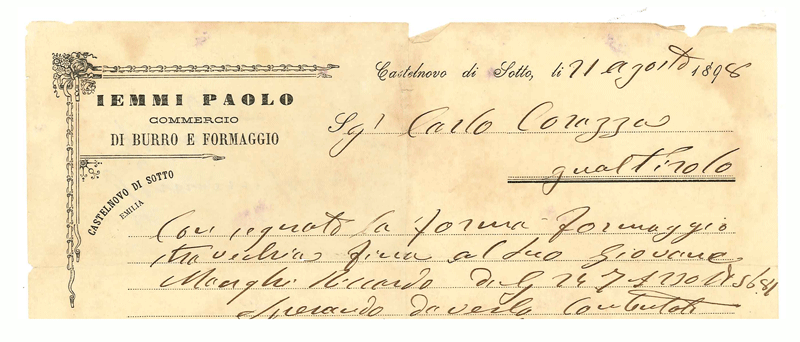 IEMMI PAOLO
COMMERCIO
DI BURRO E FORMAGGIO
CASTELNOVO DI SOTTO
EMILIA
Castelnovo di Sotto, li 21 agosto 1898
Sgr Carlo Corazza
Gualtirolo
Consegnato la forma formaggio
stravecchio fina al suo giovane
Manghi Riccardo di
sperando d'averlo contentato